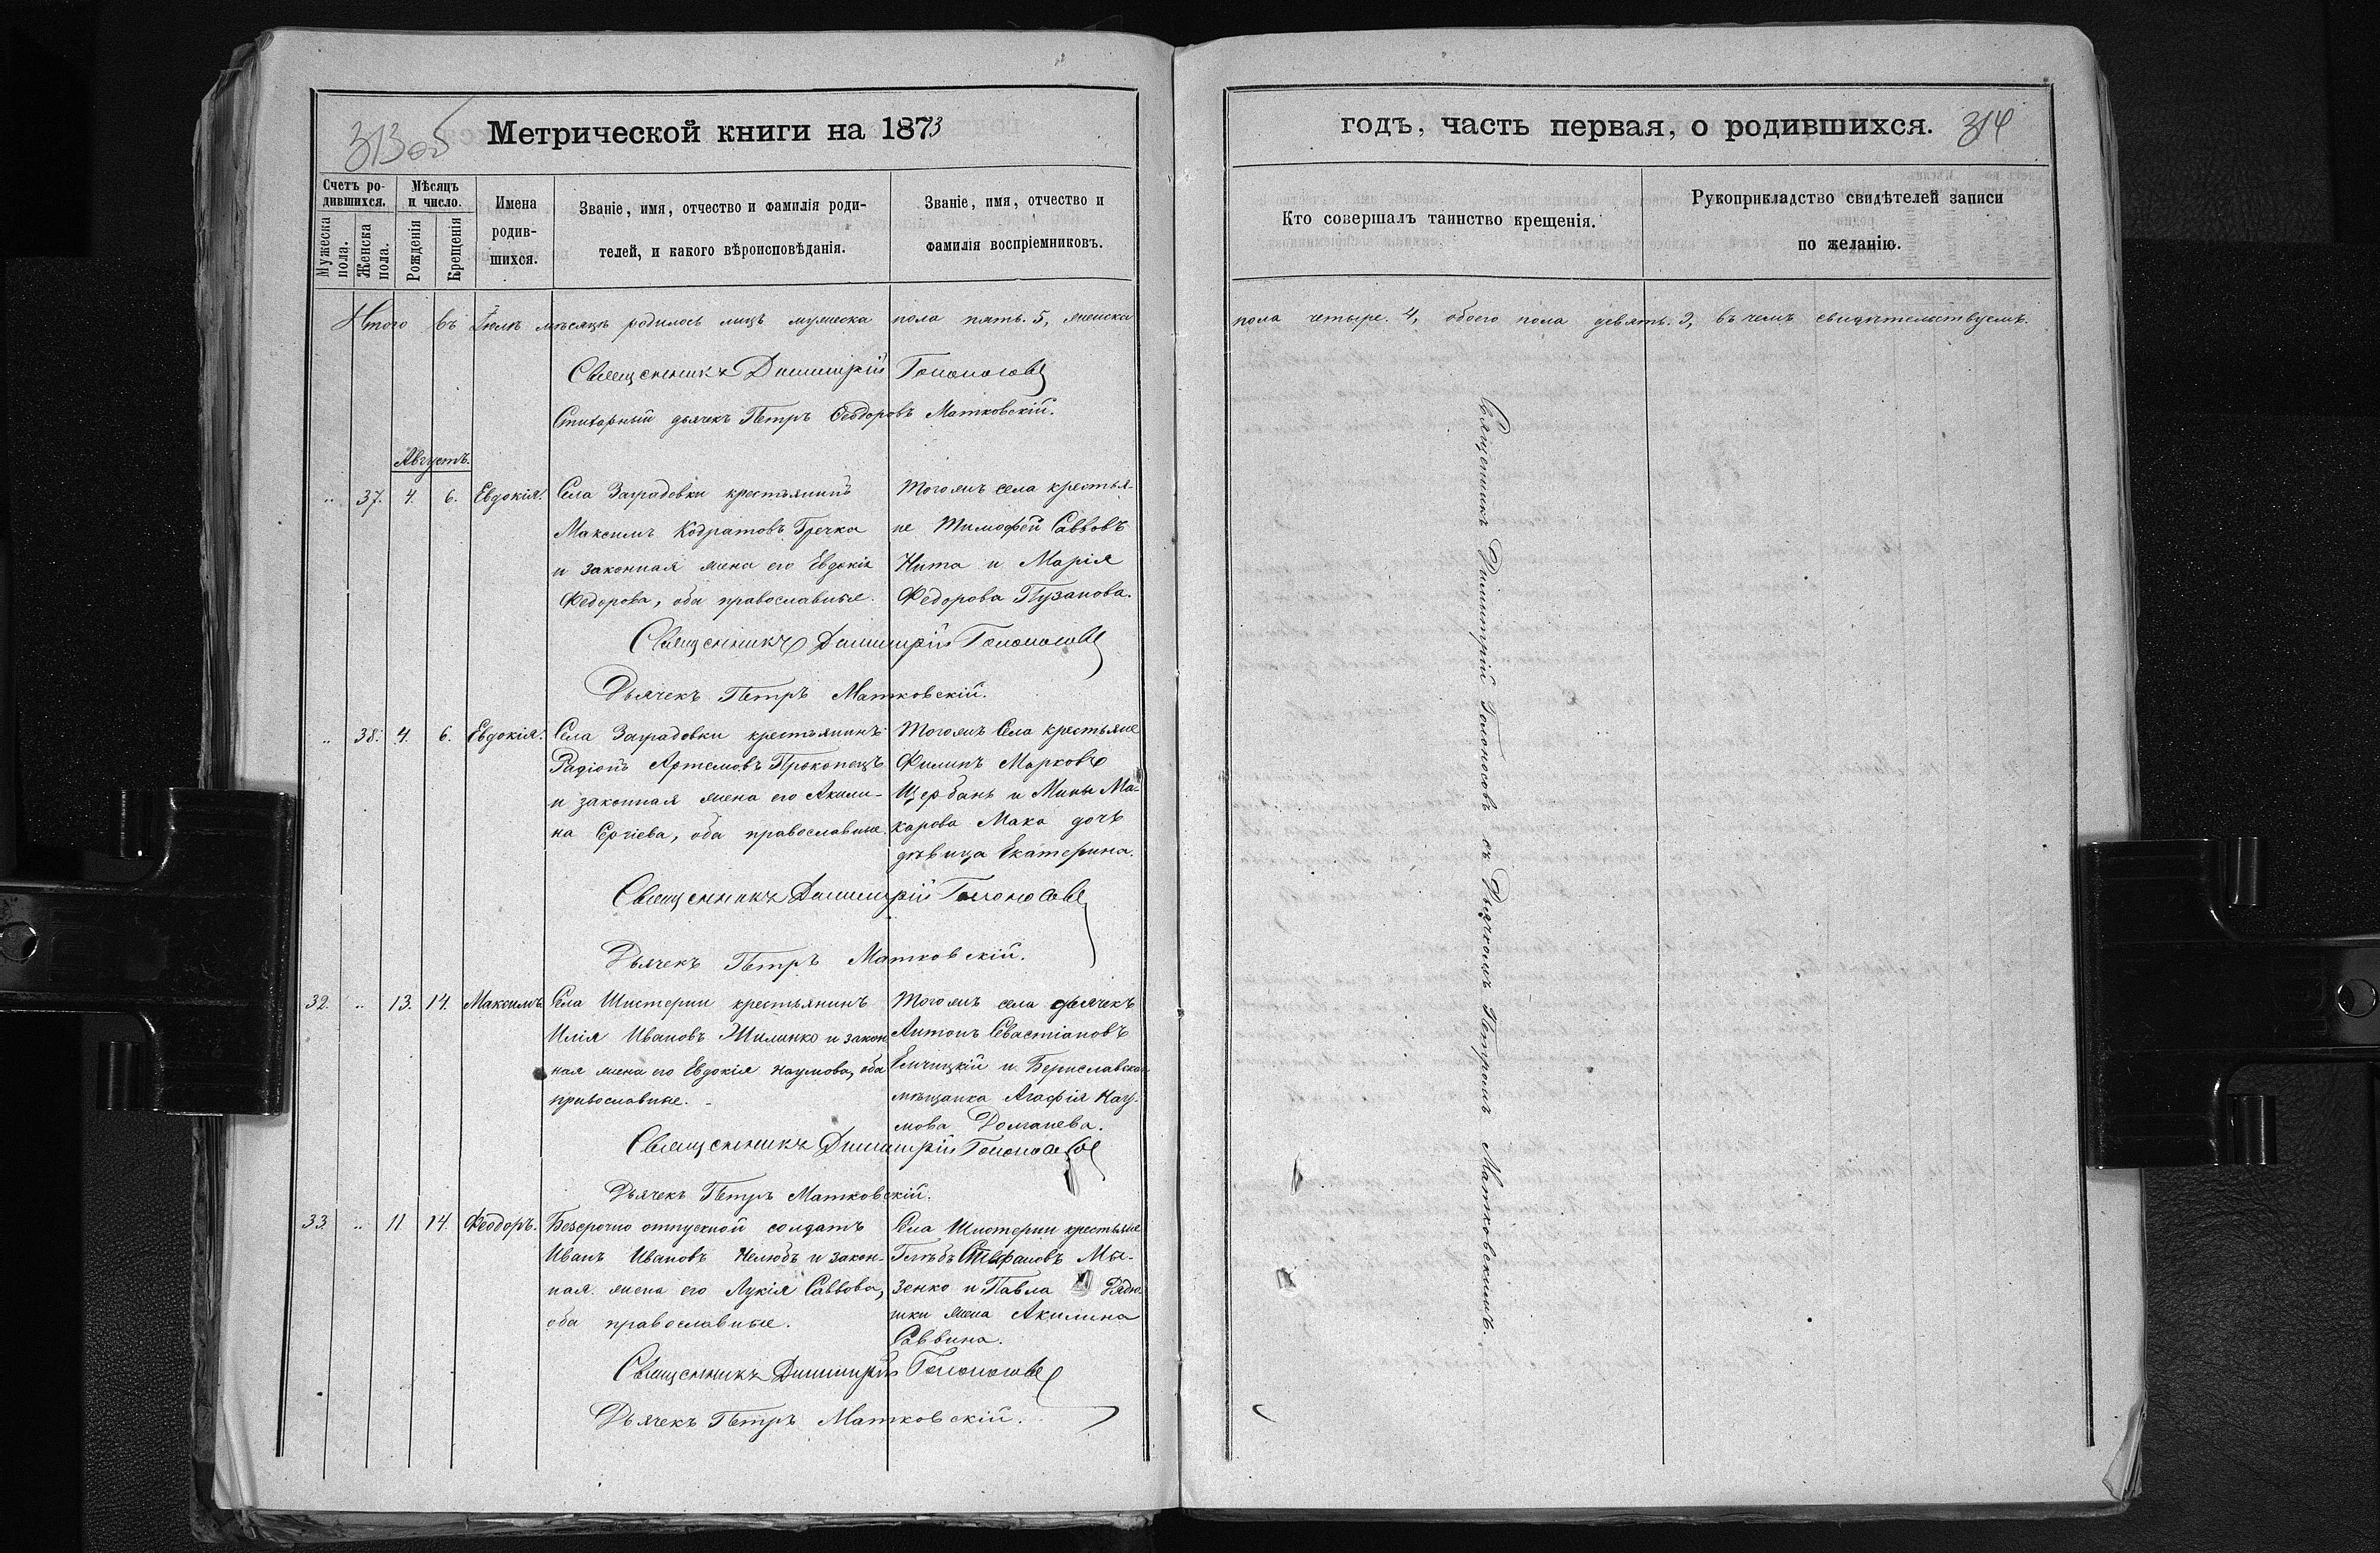 313об
Метрической книги на 1873
Счетъ родившихся.
Мужеска пола.
Женска пола.
Мѣсяцъ и число.
Рожденія
Крещенія
Имена родившихся.
Званіе, имя, отчество и фамилія роди-
телей, и какого вѣроисповѣданія.
Званіе, имя, отчество и
фамилія воспріемниковъ.
Итого въ Іюлѣ мѣсяцѣ родилось лицъ мужеска пола пять. 5, женска
Священникъ Димитрій Голоносовъ
Стихарный дьячекъ Петръ Ѳеодоровъ Матковскій.
Августъ.
.. 37. 4. 6. Евдокія.
Села Заградовки крестьянинъ
Максимъ Кодратовъ Гречка
и законная жена его Евдокія
Федорова, оба православные.
Тогожъ села крестья-
не Тимофей Саввовъ
Нита и Марія
Федорова Пузанова.
Священникъ Димитрій Голоносовъ
Дьячекъ Петръ Матковскій.
.. 38. 4. 6. Евдокія.
Села Заградовки крестьянинъ
Радіонъ Артемовъ Прокопецъ
и законная жена его Акили-
на Сергіева, оба православные.
Тогожъ Села крестьяне
Филипъ Марковъ
Щербань и Мины Ма-
карова Мака дочь
дѣвица Екатерина.
Священникъ Димитрій Голоносовъ
Дьячекъ Петръ Матковскій.
32. .. 13. 14. Максимъ
Села Шестерни крестьянинъ
Илія Ивановъ Жилинко и закон
ная жена его Евдокія Наумова, оба
православные.
Тогожъ села дьячекъ
Антонъ Севастіановъ
и Бериславская
мѣщанка Агафія Нау-
мова Долганева.
Священникъ Димитрій Голоносовъ
Дьячекъ Петръ Матковскій.
33. .. 11. 14. Ѳеодоръ.
Безсрочно отпускной солдатъ
Иванъ Ивановъ Нелюбъ и закон-
ная жена его Лукія Саввова,
оба православные.
Села Шестерни крестьяне
Глѣбъ Стефановъ Мы-
зенко и Павла
жена Акилина
Саввина.
Священникъ Димитрій Голоносовъ
Дьячекъ Петръ Матковскій.
годъ, часть первая, о родившихся.
314
Кто совершалъ таинство крещенія.
Рукоприкладство свидѣтелей записи
по желанію.
пола четыре. 4, обоего пола девять. 9, въ чемъ свидѣтельствуемъ.
Священникъ Димитрій Голоносовъ съ Дьячкомъ Петромъ Матковскимъ.